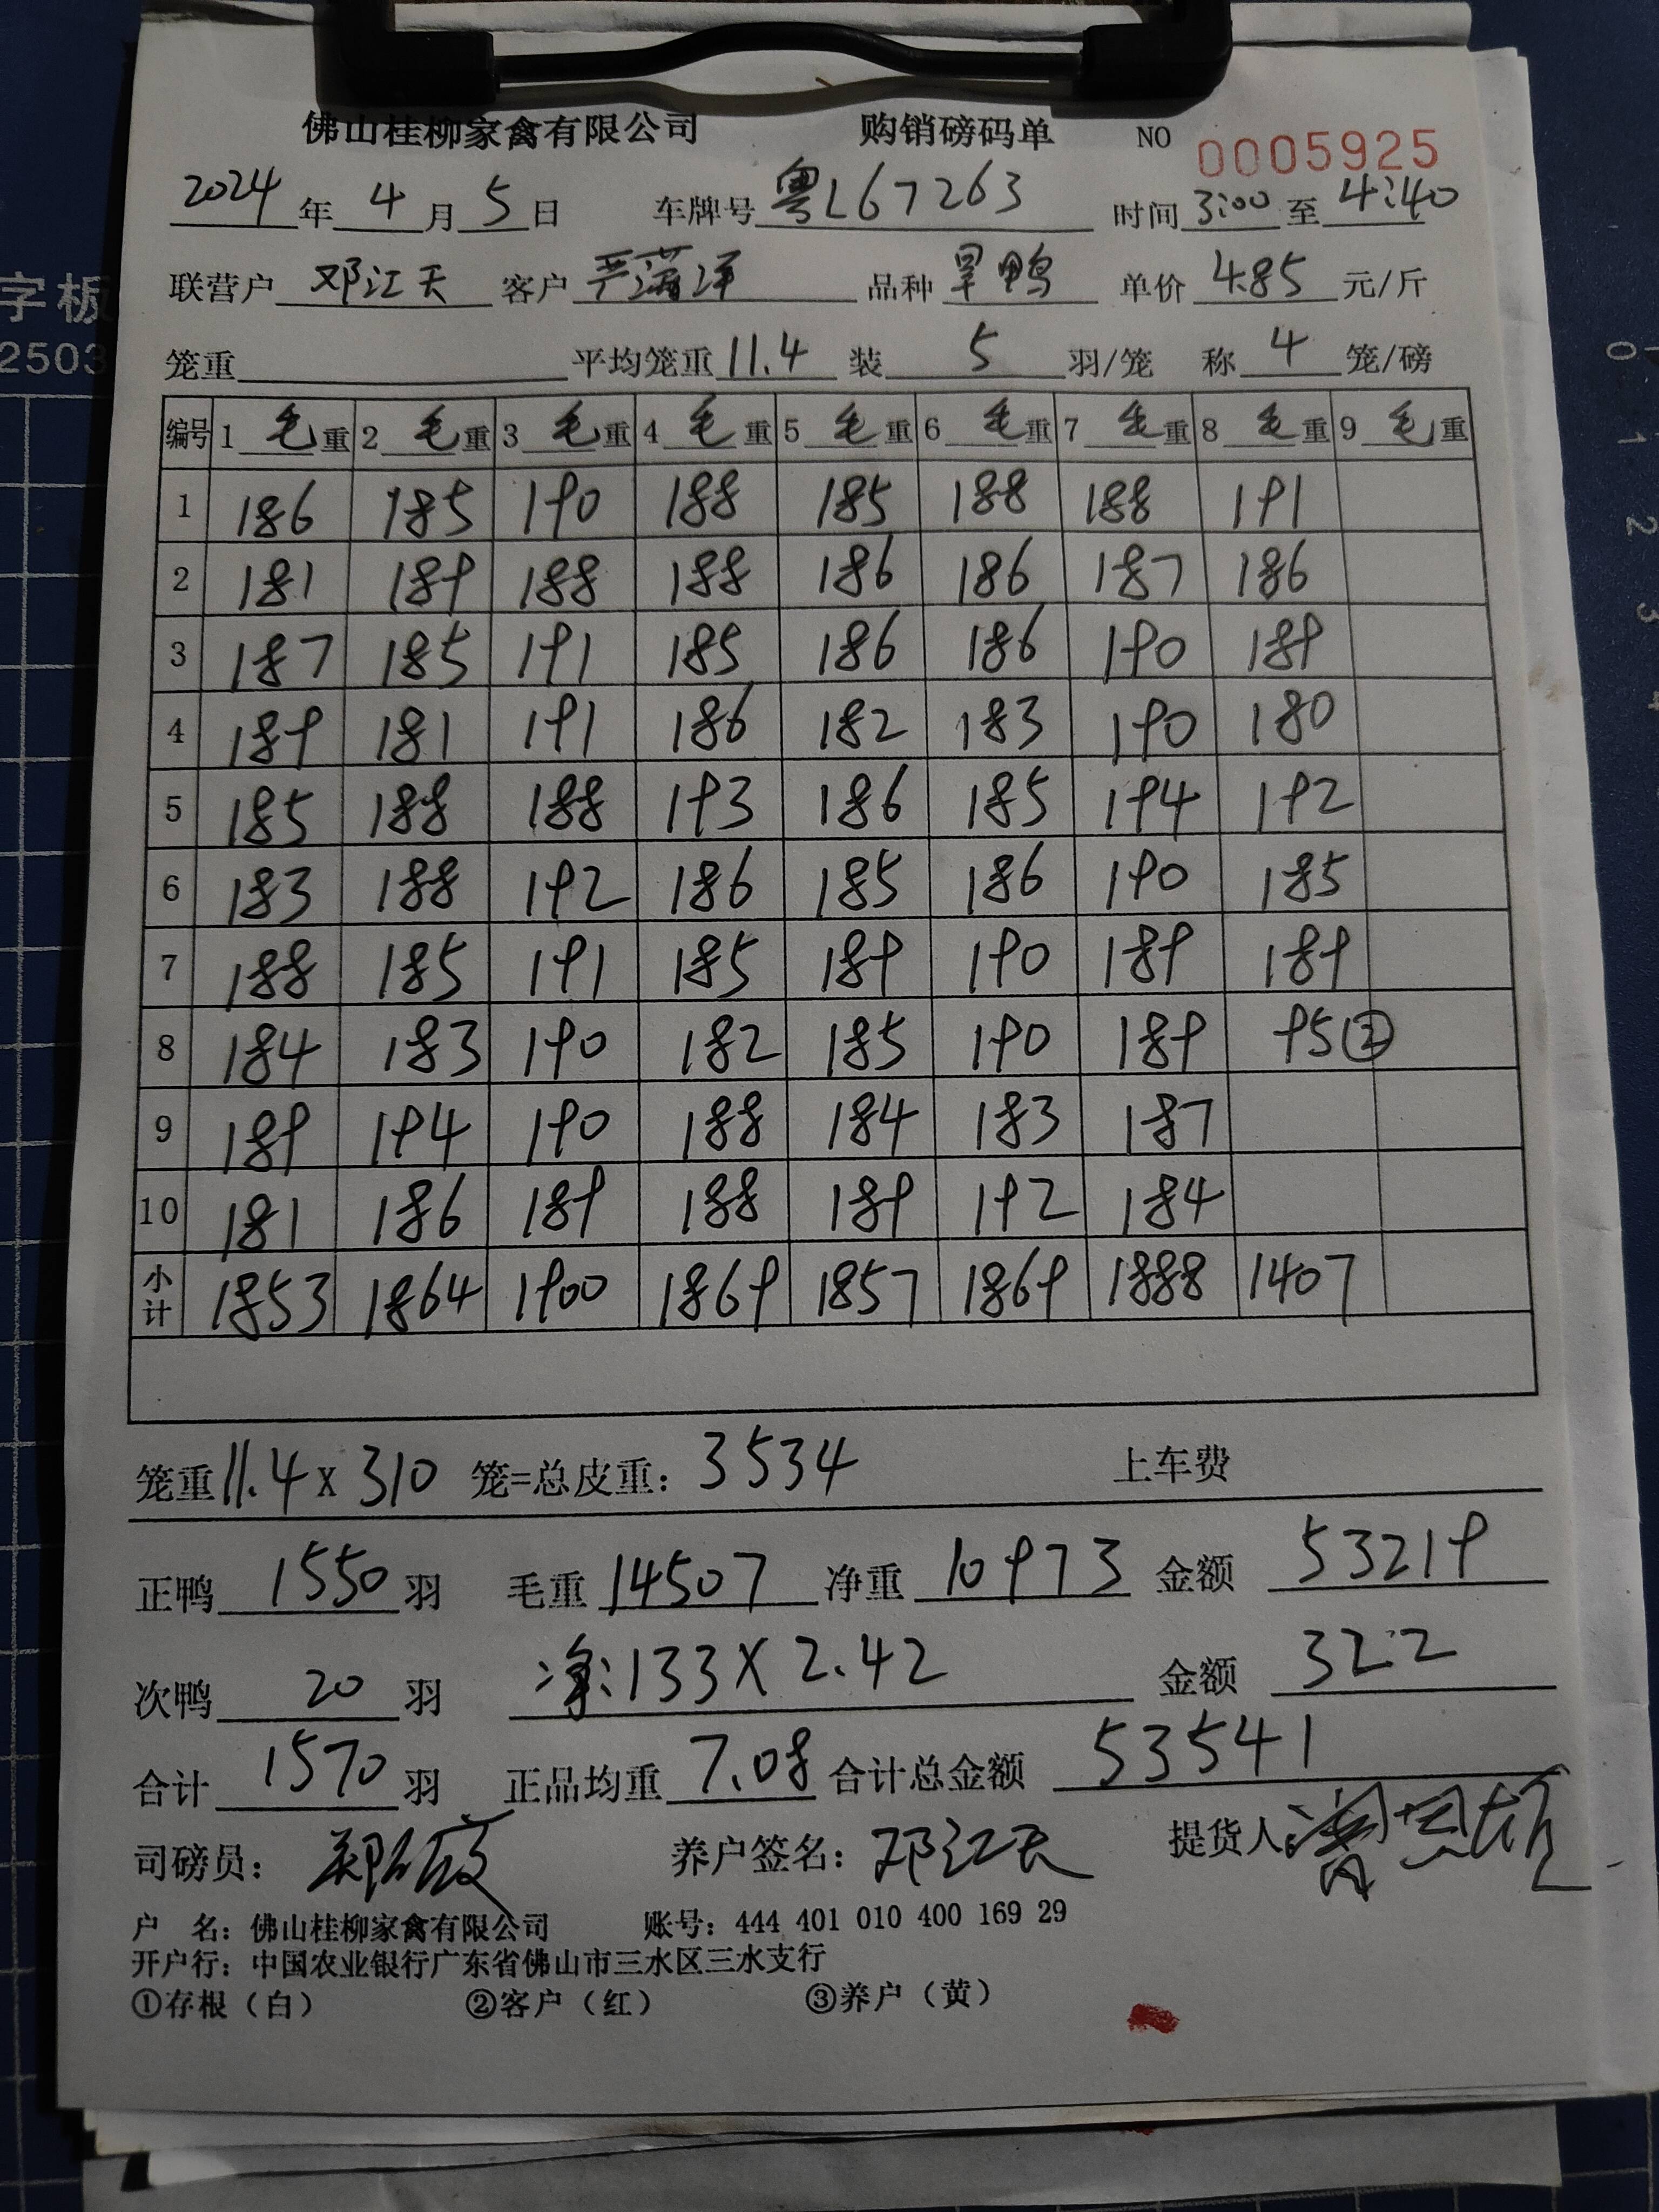 佛山桂柳家禽有限公司 购销磅码单 NO 0005925
2024年4月5日 车牌号 粤L67263 时间 3:00 至 4:40
联营户 邓江天 客户 严满洋 品种 旱鸭 单价 4.85 元/斤
笼重 平均笼重 11.4 装 5 羽/笼 称 4 笼/磅
编号 1 毛重 2 毛重 3 毛重 4 毛重 5 毛重 6 毛重 7 毛重 8 毛重 9 毛重
1 186 185 190 188 185 188 188 191
2 181 189 188 188 186 186 187 186
3 187 185 191 185 186 186 190 189
4 189 181 191 186 182 183 190 180
5 185 188 188 193 186 185 194 192
6 183 188 192 186 185 186 190 185
7 188 185 191 185 189 190 189 189
8 184 183 190 182 185 190 189 95②
9 189 194 190 188 184 183 187
10 181 186 189 188 189 192 184
小计 1853 1864 1900 1869 1857 1869 1888 1407
笼重 11.4 x 310 笼=总皮重: 3534 上车费
正鸭 1550 羽 毛重 14507 净重 10973 金额 53219
次鸭 20 羽 净:133X2.42 金额 322
合计 1570 羽 正品均重 7.08 合计总金额 53541
司磅员: 养户签名: 邓江天 提货人:
户 名: 佛山桂柳家禽有限公司 账号: 444 401 010 400 169 29
开户行: 中国农业银行广东省佛山市三水区三水支行
①存根(白) ②客户(红) ③养户(黄)
字板
2503
0 1 2 3 4